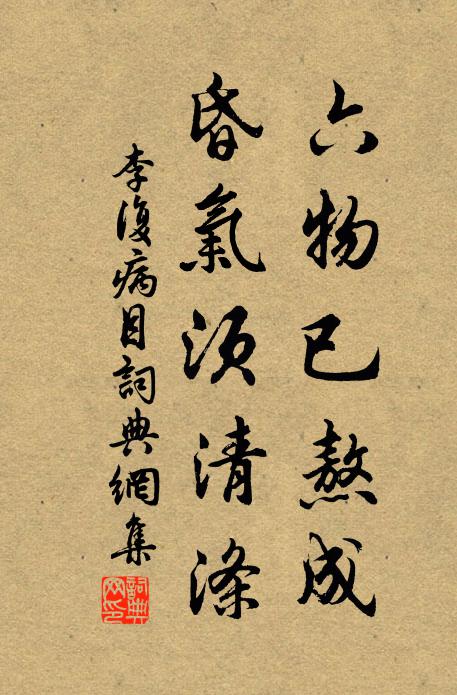 六物已熬成
昏氣須清滌
李復病目詞典網集
詞典
网印